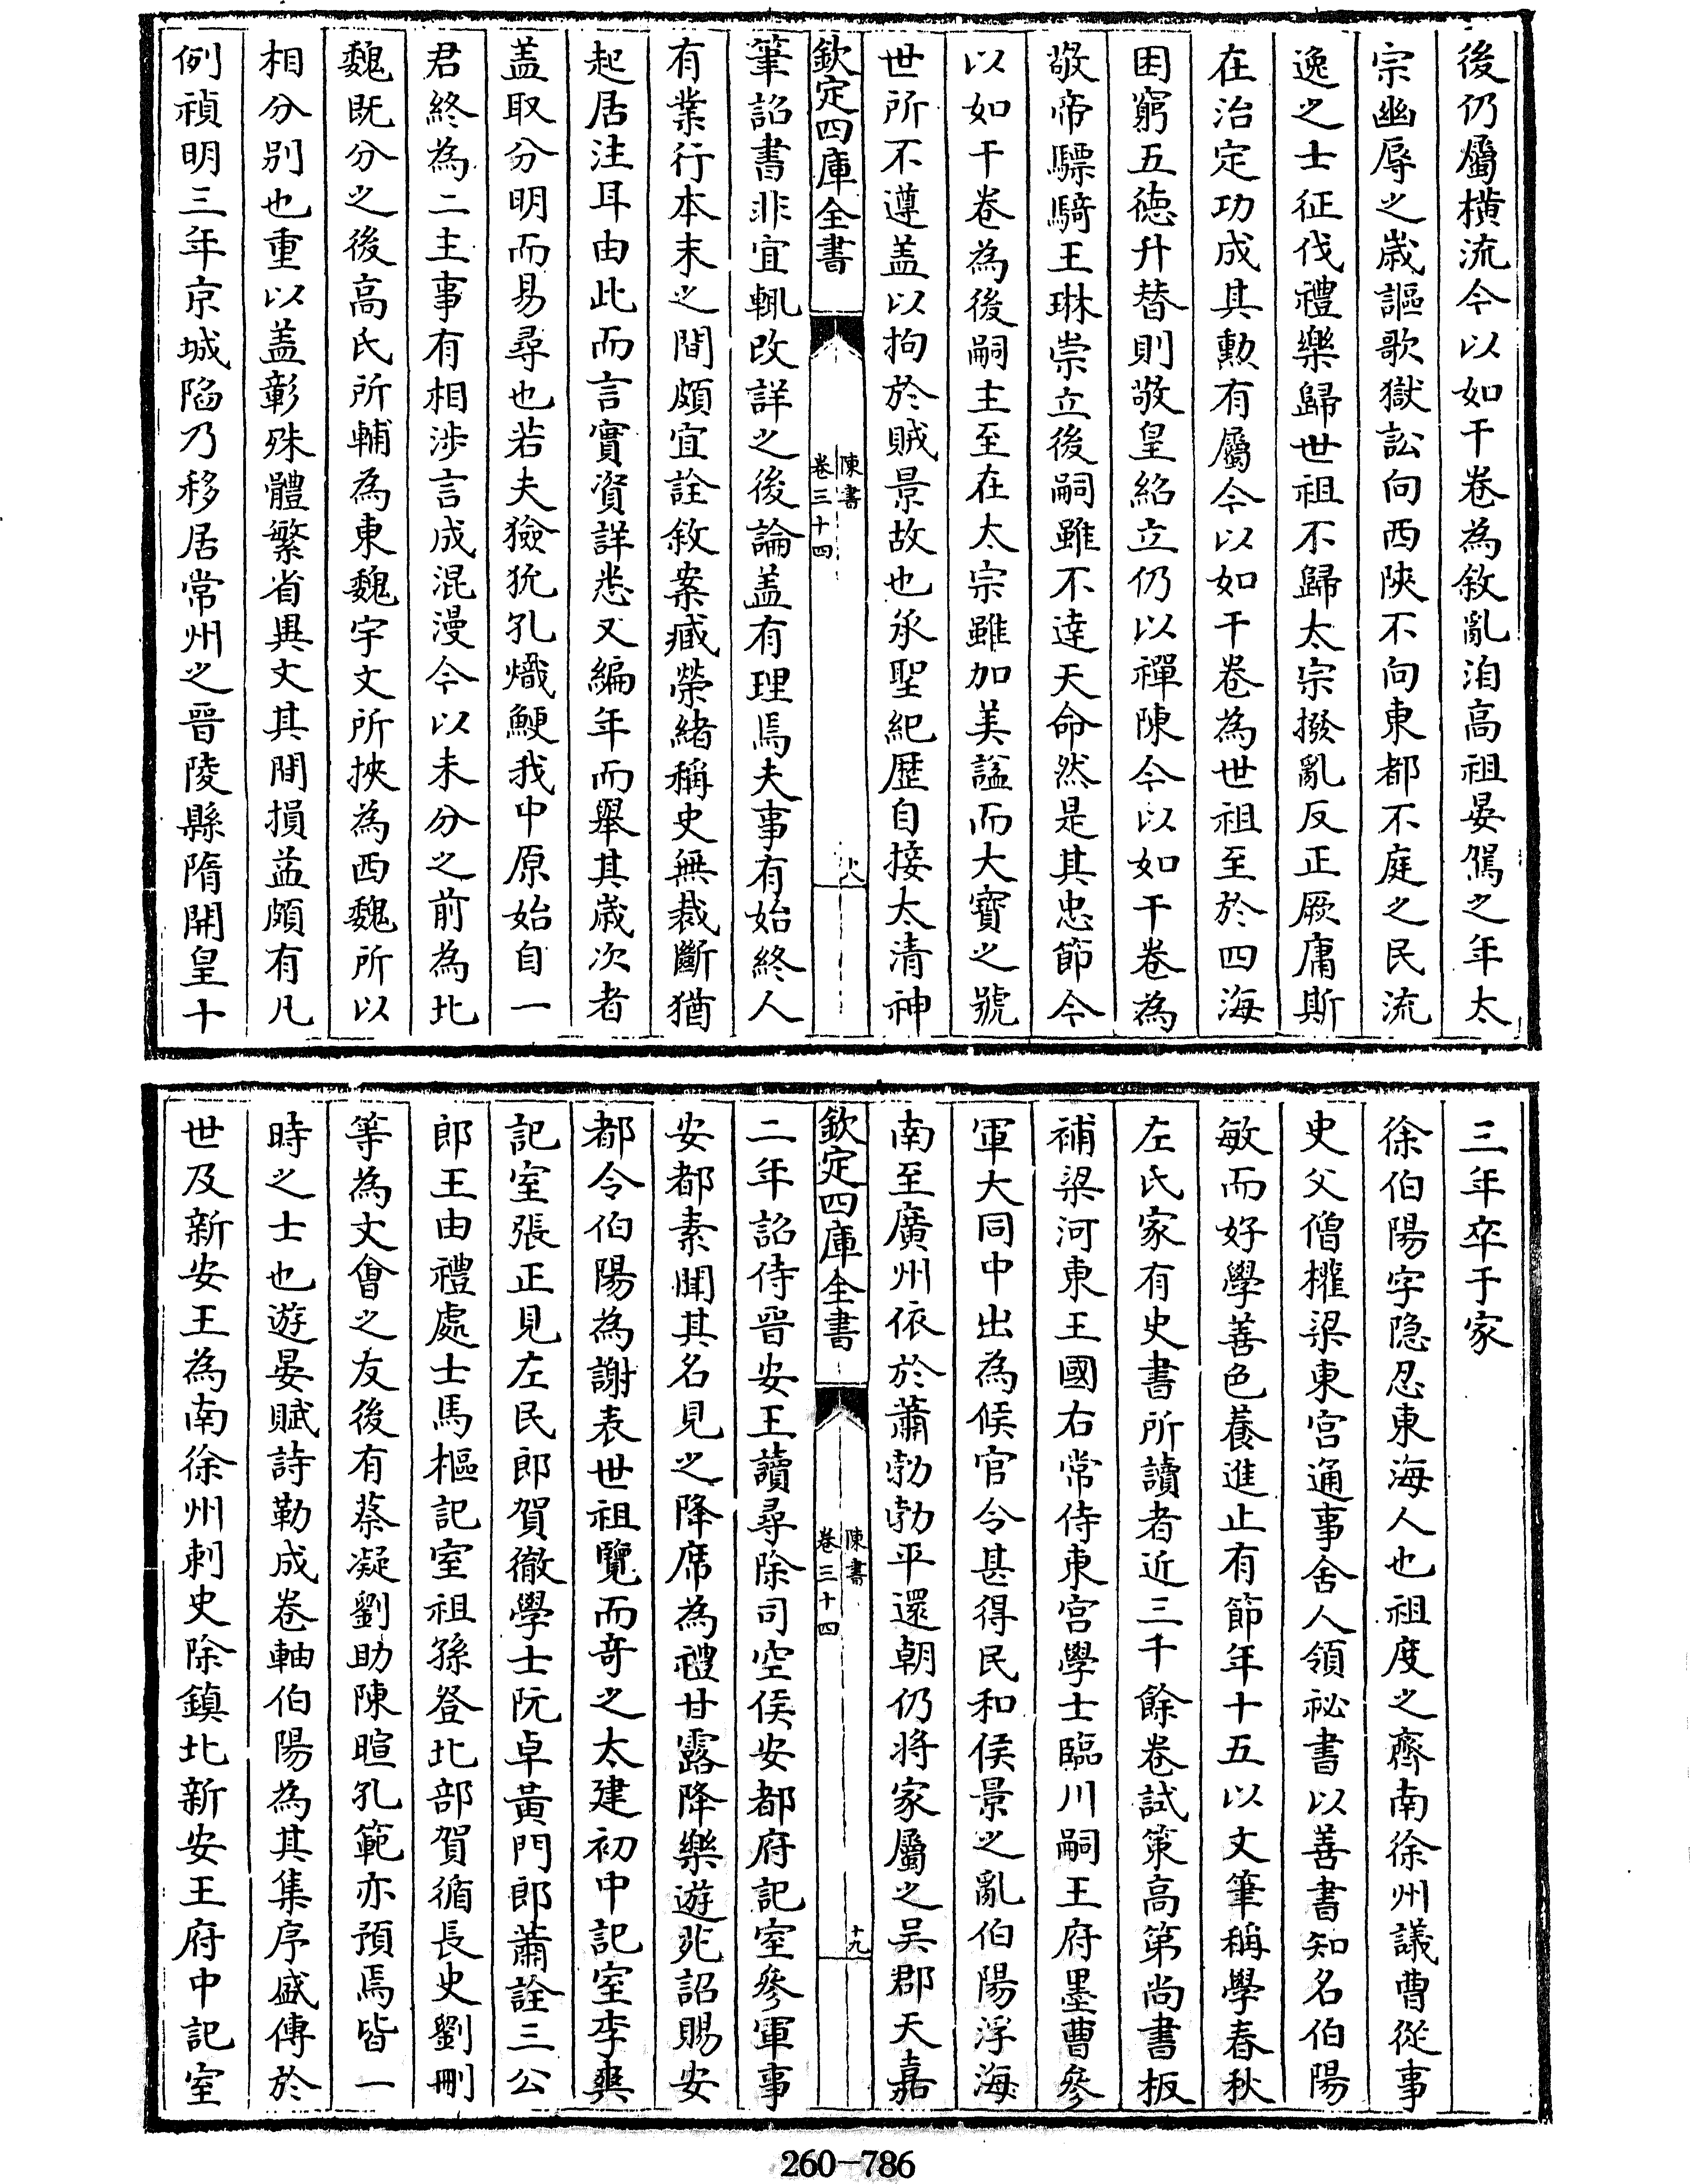 後仍屬横流今以如干卷為敘亂洎高祖晏駕之年太
宗幽辱之嵗謳歌獄訟向西陝不向東都不庭之民流
逸之士征伐禮樂歸世祖不歸太宗撥亂反正厥庸斯
在治定功成其勲有屬今以如干卷為世祖至於四海
困窮五德升替則敬皇紹立仍以禪陳今以如干卷為
敬帝驃騎王琳崇立後嗣雖不達天命然是其忠節今
以如干卷為後嗣主至在太宗雖加美諡而大寶之號
世所不遵盖以拘於賊景故也承聖紀歴自接太清神
欽定四庫全書
陳書
卷三十四
筆詔書非宜輒改詳之後論盖有理焉夫事有始終人
有業行本末之間頗宜詮敘案臧榮緒稱史無裁斷猶
起居注耳由此而言實資詳悉又編年而舉其嵗次者
盖取分明而易尋也若夫獫狁孔熾鯁我中原始自一
君終為二主事有相涉言成混漫今以未分之前為北
魏既分之後高氏所輔為東魏宇文所挾為西魏所以
相分别也重以盖彰殊體繁省異文其間損益頗有凡
例禎明三年京城陷乃移居常州之晋陵縣隋開皇十
三年卒于家
徐伯陽字隐忍東海人也祖度之齊南徐州議曹從事
史父僧權梁東宫通事舍人領祕書以善書知名伯陽
敏而好學善色養進止有節年十五以文筆稱學春秋
左氏家有史書所讀者近三千餘卷試策高第尚書板
補梁河東王國右常侍東宫學士臨川嗣王府墨曹參
軍大同中出為候官令甚得民和侯景之亂伯陽浮海
南至廣州依於蕭勃勃平還朝仍将家屬之吳郡天嘉
欽定四庫全書
陳書
卷三十四
十九
二年詔侍晋安王讀尋除司空侯安都府記室參軍事
安都素聞其名見之降席為禮甘露降樂遊苑詔賜安
都令伯陽為謝表世祖覽而竒之太建初中記室李爽
記室張正見左民郎賀徹學士阮卓黄門郎蕭詮三公
郎王由禮處士馬樞記室祖孫登北部賀循長史劉刪
等為文會之友後有蔡凝劉助陳暄孔範亦預焉皆一
時之士也遊晏賦詩勒成卷軸伯陽為其集序盛傳於
世及新安王為南徐州刺史除鎮北新安王府中記室
260-786